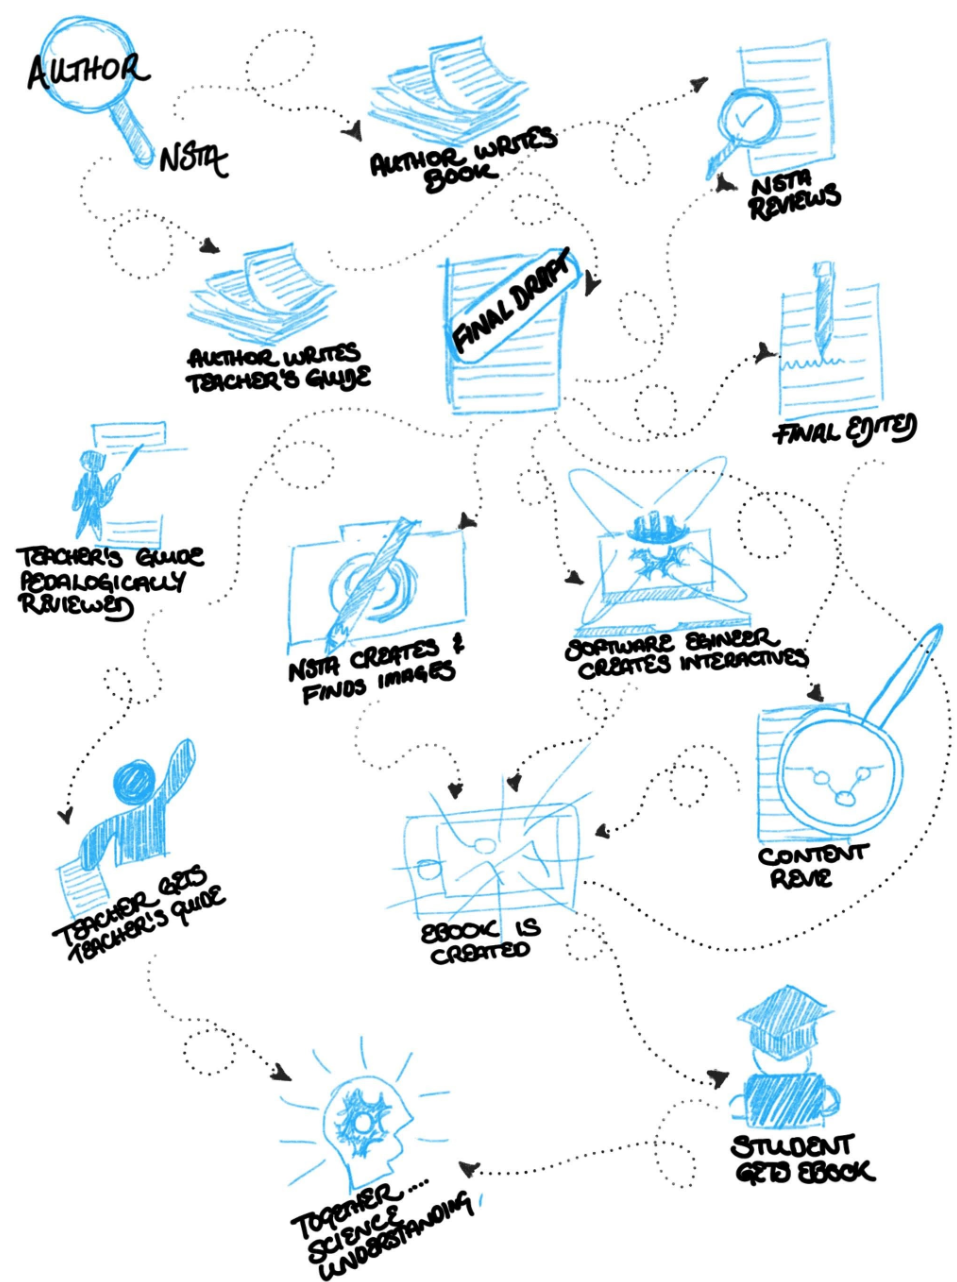 AUTHOR
NSTA
AUTHOR WRITES
BOOK
NSTA
REVIEWS
AUTHOR WRITES
TEACHER'S GUIDE
FINAL DRAFT
FINAL EDITED
TEACHER'S GUIDE
PEDALOGICALLY
REVIEWED
NSTA CREATES &
FINDS IMAGES
SOFTWARE EGINEER
CREATES INTERACTIVES
CONTENT
REVIE
TEACHER GETS
TEACHER'S GUIDE
EBOOK IS
CREATED
STUDENT
GETS EBOOK
TOGETHER ....
SCIENCE
UNDERSTANDING